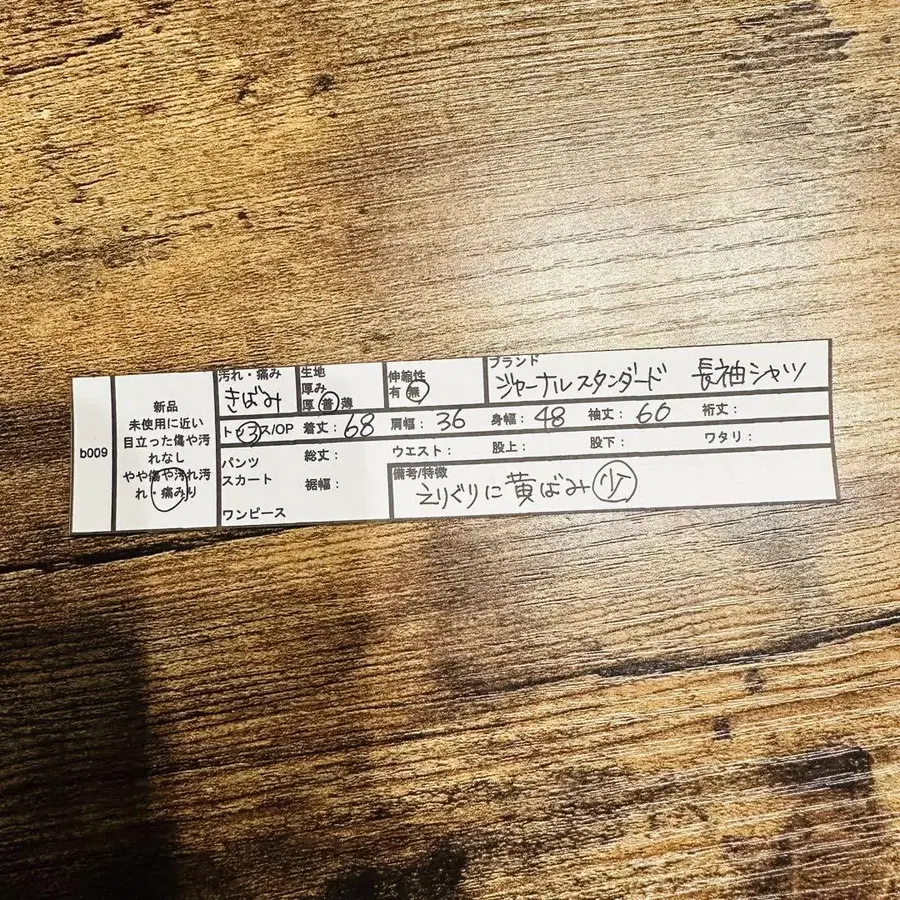 b009
新品
未使用に近い
目立った傷や汚
れなし
やや傷や汚れ汚
れ・痛みり
汚れ・痛み
きばみ
生地
厚み
厚 普 薄
伸縮性
有 無
ブランド
ジャーナルスタンダード 長袖シャツ
トップス/OP 着丈:68 肩幅:36 身幅:48 袖丈:60 裄丈:
パンツ
スカート
ワンピース
総丈: ウエスト: 股上: 股下: ワタリ:
裾幅:
備考/特徴
えりぐりに黄ばみ少